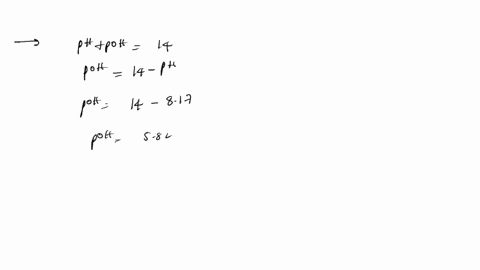 → pH + pOH = 14
pOH = 14 - pH
pOH = 14 - 8.17
pOH =